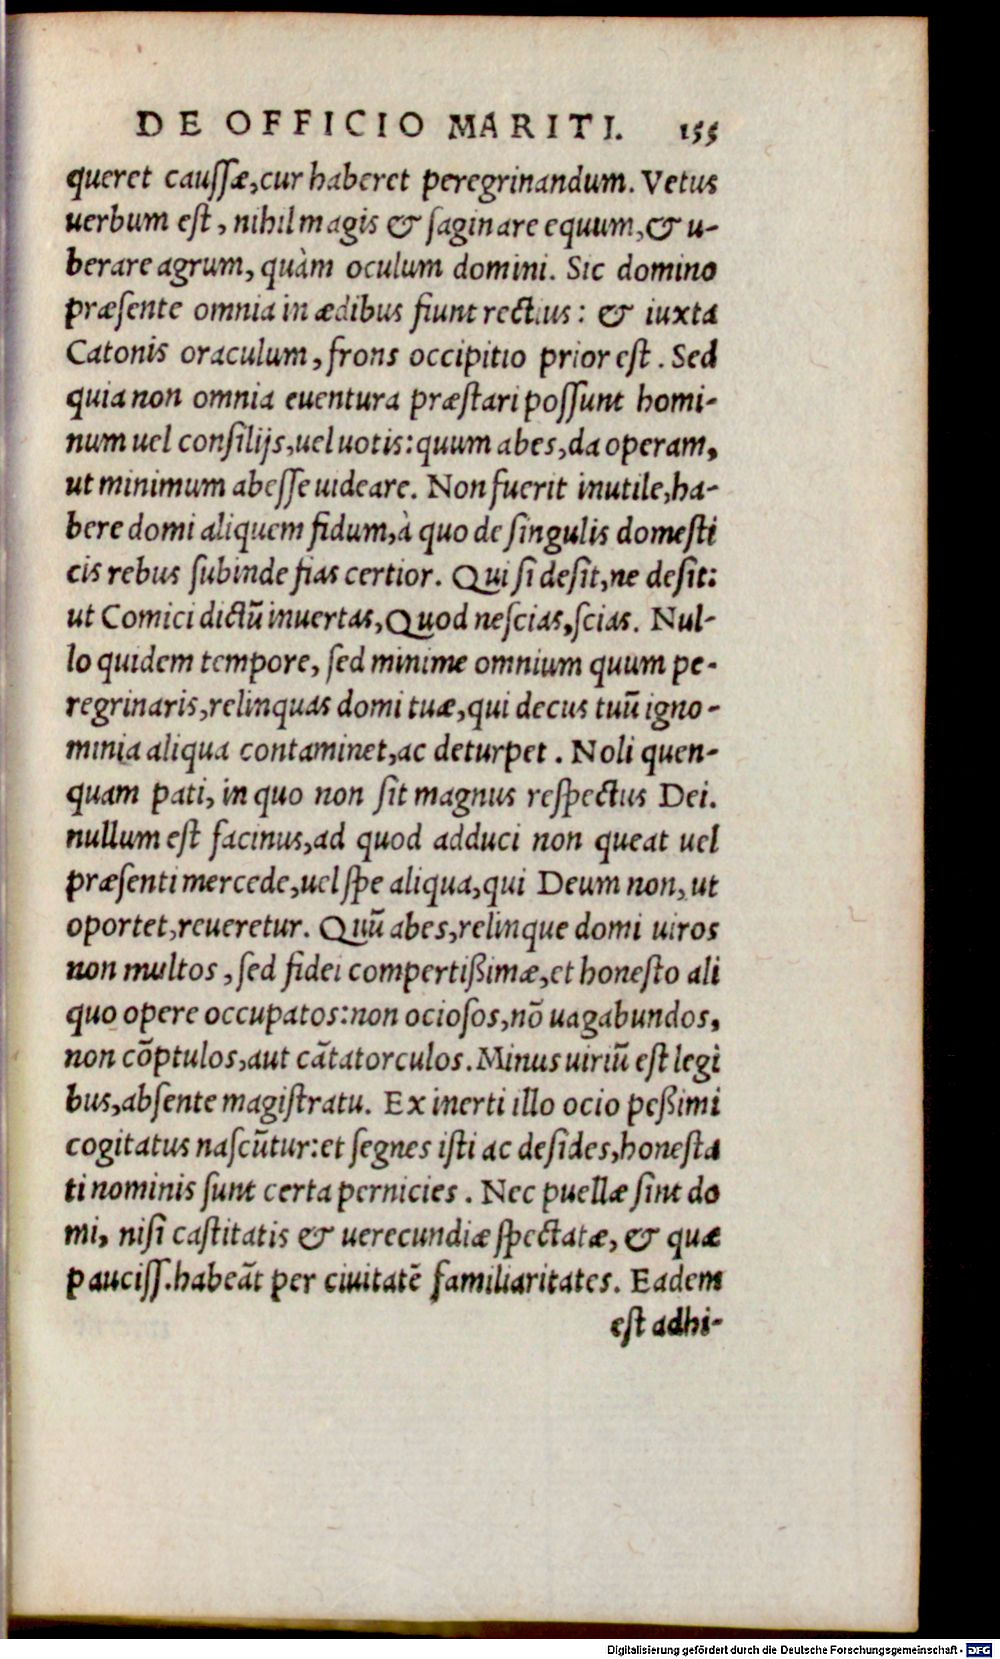 DE OFFICIO MARITI. 155
queret caussæ, cur haberet peregrinandum. Vetus
uerbum est, nihil magis & saginare equum, & u-
berare agrum, quàm oculum domini. Sic domino
præsente omnia in ædibus fiunt rectius: & iuxta
Catonis oraculum, frons occipitio prior est. Sed
quia non omnia euentura præstari possunt homi-
num uel consilijs, uel uotis: quum abes, da operam,
ut minimum abesse uideare. Non fuerit inutile, ha-
bere domi aliquem fidum, à quo de singulis domesti
cis rebus subinde fias certior. Qui si desit, ne desit:
ut Comici dictũ inuertas, Quod nescias, scias. Nul-
lo quidem tempore, sed minime omnium quum pe-
regrinaris, relinquas domi tuæ, qui decus tuũ igno-
minia aliqua contaminet, ac deturpet. Noli quen-
quam pati, in quo non sit magnus respectus Dei.
nullum est facinus, ad quod adduci non queat uel
præsenti mercede, uel spe aliqua, qui Deum non, ut
oportet, reueretur. Quũ abes, relinque domi uiros
non multos, sed fidei compertißimæ, et honesto ali
quo opere occupatos: non ociosos, nõ uagabundos,
non cõptulos, aut cãtatorculos. Minus uiriũ est legi
bus, absente magistratu. Ex inerti illo ocio peßimi
cogitatus nascũtur: et segnes isti ac desides, honesta
ti nominis sunt certa pernicies. Nec puellæ sint do
mi, nisi castitatis & uerecundiæ spectatæ, & quæ
pauciss. habeãt per ciuitatẽ familiaritates. Eadem
est adhi-
Digitalisierung gefördert durch die Deutsche Forschungsgemeinschaft - DFG